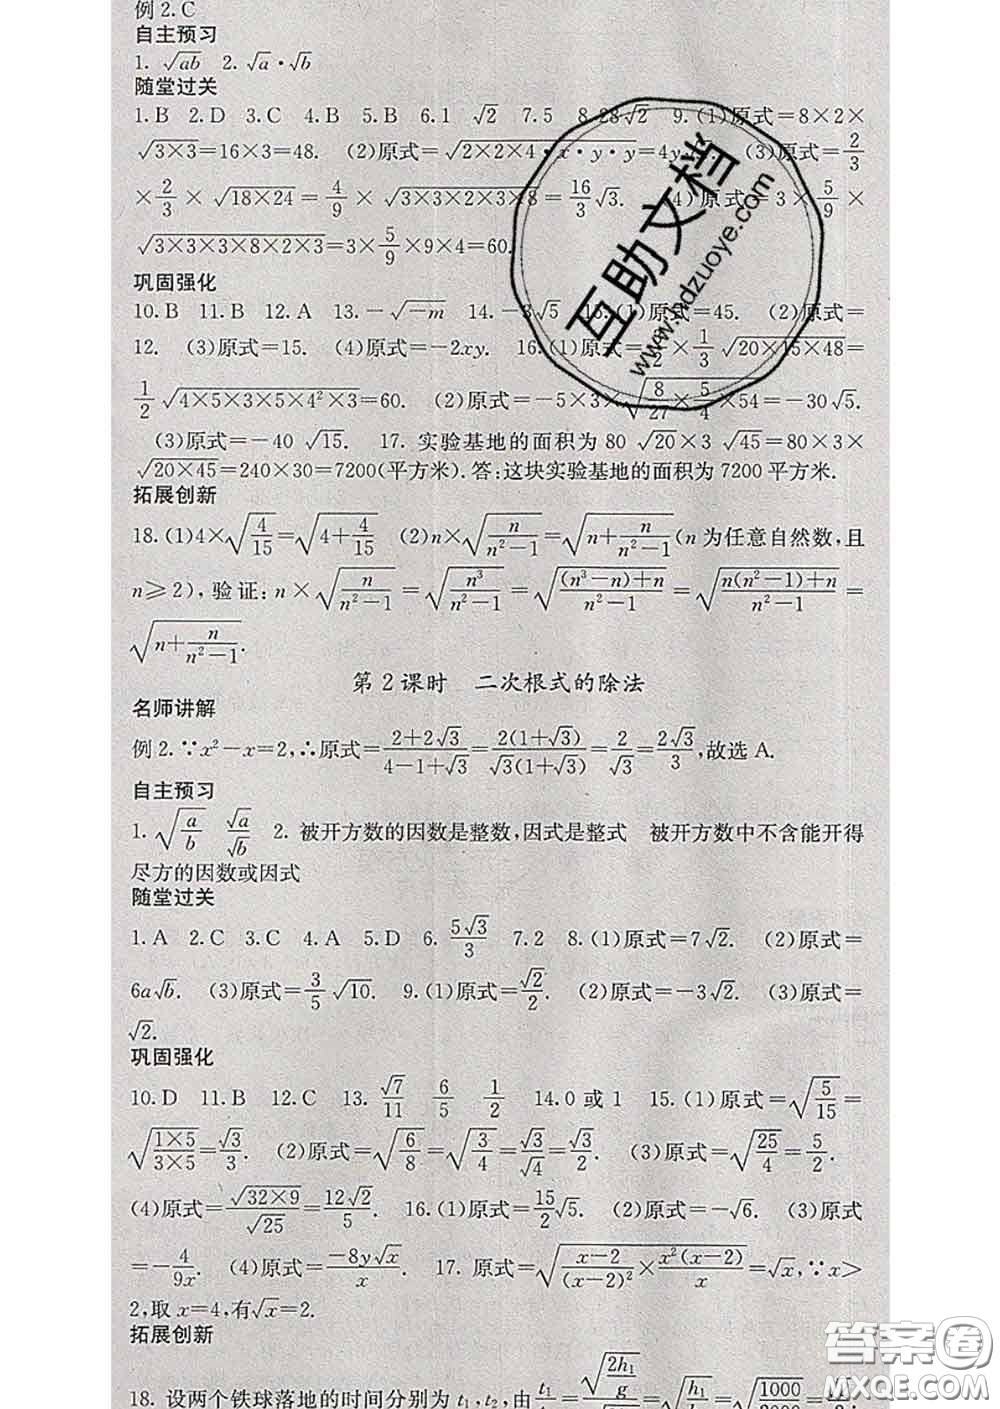 例2.C
自主预习
1. √ab 2. √a·√b
随堂过关
1.B 2.D 3.C 4.B 5.B 6.1 √2 7.5 8.28√2 9.(1)原式=8×2×
√(3×3)=16×3=48. (2)原式=√(2×2×4·x·y·y)=4y (3)原式=2/3
×2/3×√(18×24)=4/9×√(3×3×2×3×8)=16/3√3. (4)原式=3×5/9×
√(3×3×3×8×2×3)=3×5/9×9×4=60.
巩固强化
10.B 11.B 12.A 13.-√(-m) 14.-3√5 15.(1)原式=45. (2)原式=
12. (3)原式=15. (4)原式=-2xy. 16.(1)原式=×1/3√(20×15×48)=
1/2√(4×5×3×5×4²×3)=60. (2)原式=-5×3×√(8/27×5/4×54)=-30√5.
(3)原式=-40√15. 17. 实验基地的面积为80√20×3√45=80×3×
√(20×45)=240×30=7200(平方米).答:这块实验基地的面积为7200平方米.
拓展创新
18.(1)4×√(4/15)=√(4+4/15) (2)n×√(n/(n²-1))=√(n+n/(n²-1))(n为任意自然数,且
n≥2),验证:n×√(n/(n²-1))=√(n³/(n²-1))=√(((n³-n)+n)/(n²-1))=√((n(n²-1)+n)/(n²-1))=
√(n+n/(n²-1)).
第2课时 二次根式的除法
名师讲解
例2.∵x²-x=2,∴原式=(2+2√3)/(4-1+√3)=2(1+√3)/(√3(1+√3))=2/√3=2√3/3,故选A.
自主预习
1. √(a/b) √a/√b 2. 被开方数的因数是整数,因式是整式 被开方数中不含能开得
尽方的因数或因式
随堂过关
1.A 2.C 3.C 4.A 5.D 6. 5√3/3 7.2 8.(1)原式=7√2. (2)原式=
6a√b. (3)原式=3/5√10. 9.(1)原式=√2/2. (2)原式=-3√2. (3)原式=
√2.
巩固强化
10.D 11.B 12.C 13. √7/11 6/5 1/2 14.0或1 15.(1)原式=√(5/15)=
√((1×5)/(3×5))=√3/3. (2)原式=√(6/8)=√(3/4)=√3/√4=√3/2. (3)原式=√(25/4)=5/2.
(4)原式=√(32×9)/√25=12√2/5. 16.(1)原式=15/2√5. (2)原式=-√6. (3)原式
=-4/9x. (4)原式=-8y√x/x. 17. 原式=√((x-2)/(x-2)²×x²(x-2)/x)=√x,∵x>
2,取x=4,有√x=2.
拓展创新
18. 设两个铁球落地的时间分别为t₁,t₂,由t₁/=√(2h₁/g)/=√(h₁/)=√(1000/2000)=√2/2.
互助文档
www.hdzuoye.com
答案圈
MXQE.COM